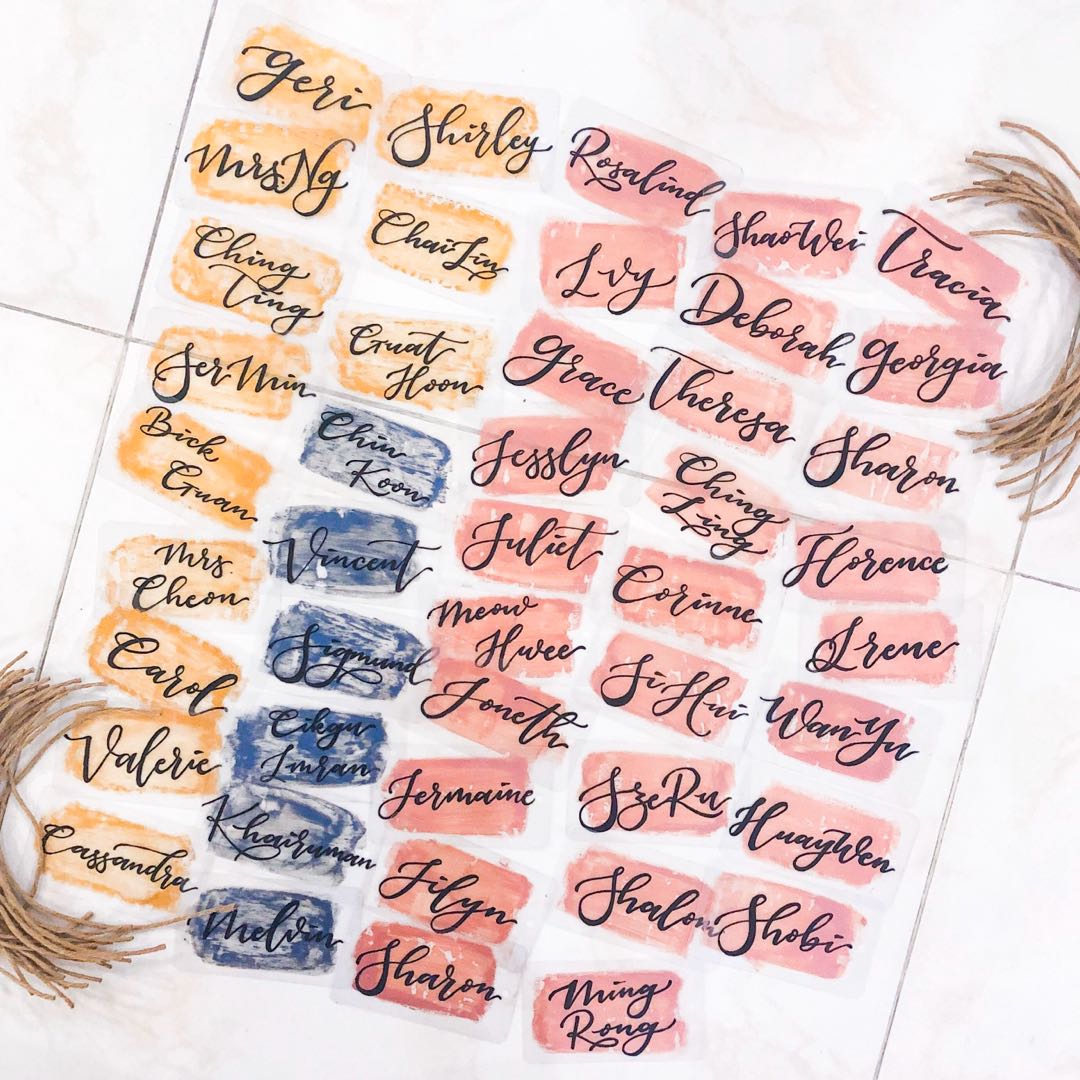 Geri
Mrs Ng
Ching
Ting
Ser Min
Bick
Guan
Mrs
Cheon
Carol
Valerie
Cassandra
Shirley
Chai Lin
Guat
Hoon
Chin
Koon
Vincent
Sigmund
Cikgu
Imran
Khairuman
Melvin
Rosalind
Ivy
Grace
Jesslyn
Juliet
Meow
Hwee
Joneth
Jermaine
Jilyn
Sharon
Shao Wei
Deborah
Theresa
Ching
Ling
Corinne
Si Hui
Sze Ru
Shalom
Ming
Rong
Tracia
Georgia
Sharon
Florence
Irene
Wan Yu
Huay Wen
Shobi